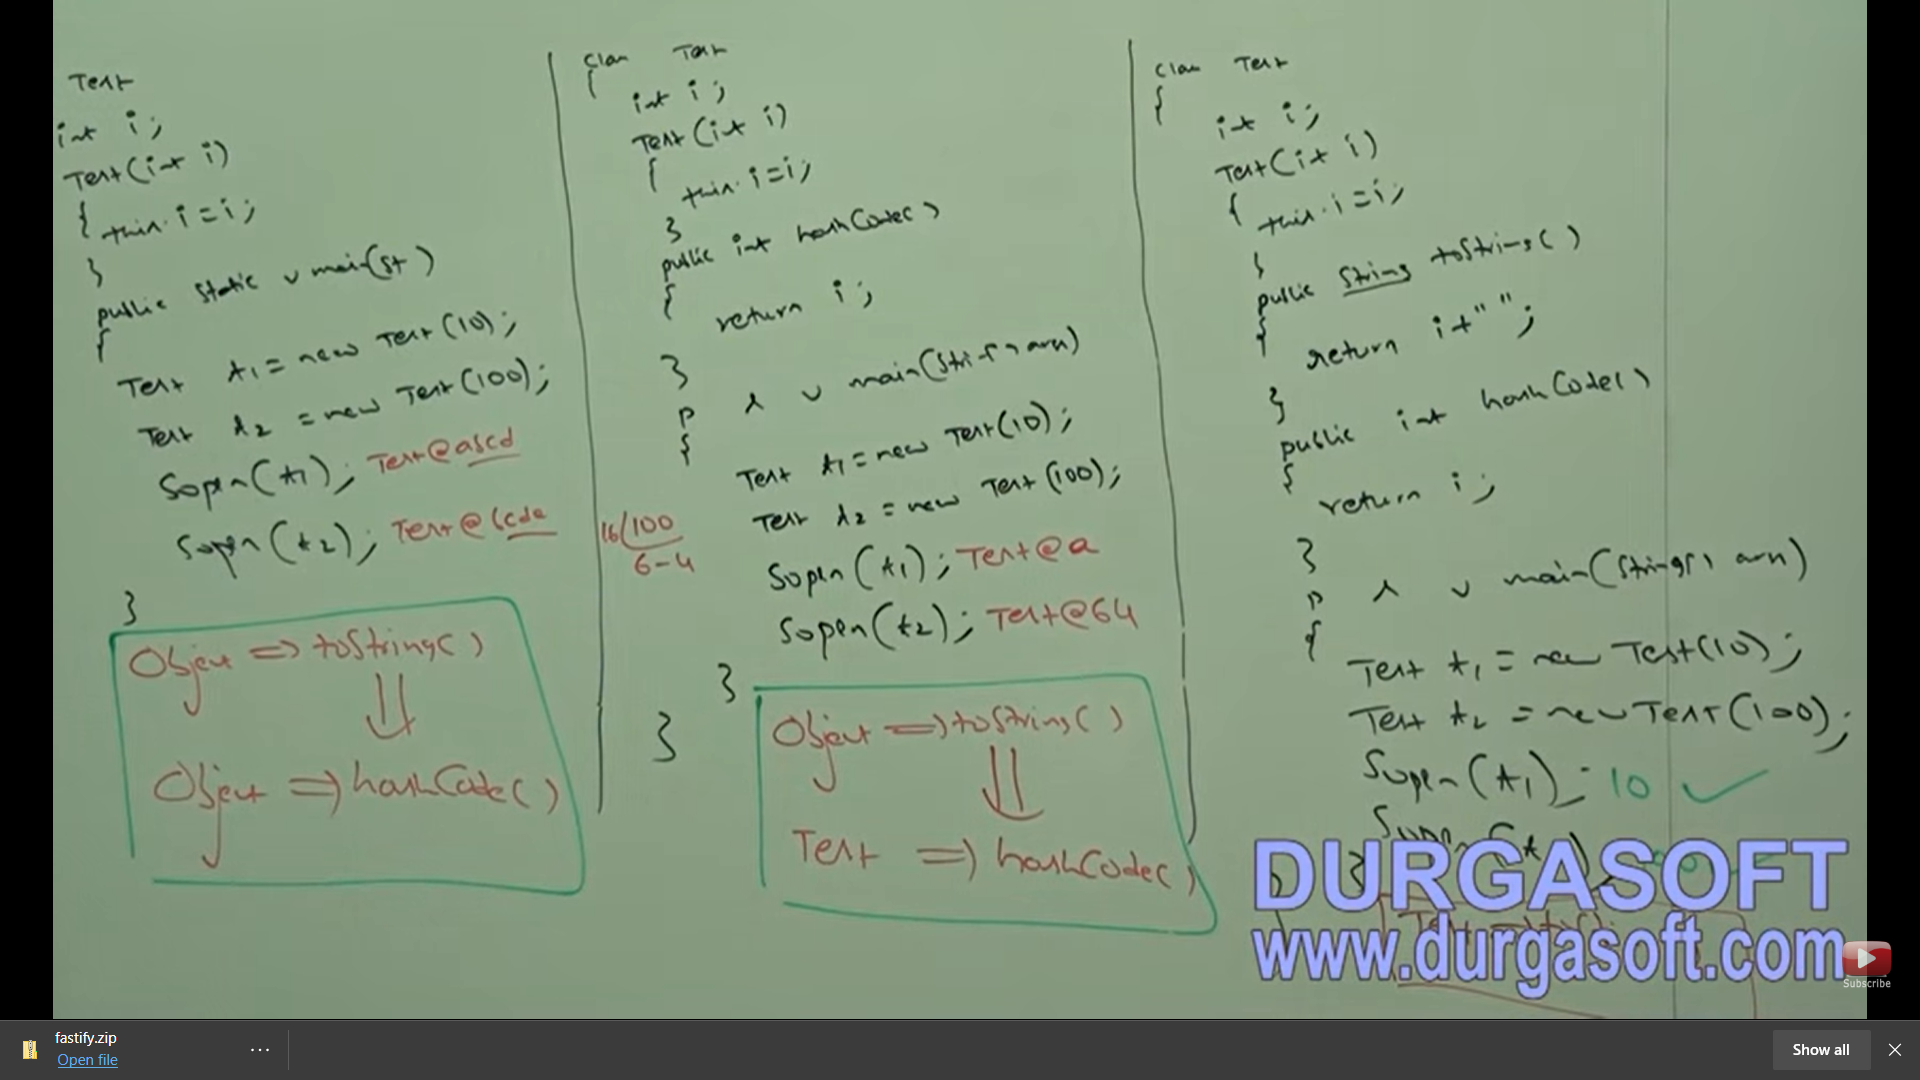 Test
int i;
Test(int i)
{ this.i=i;
}
public static v main(St )
{
Test t1 = new Test(10);
Test t2 = new Test(100);
Sopln(t1); Test@abcd
Sopln(t2);
}
Object => toString()
Object => hashCode()
class Test
{
int i;
Test(int i)
{
this.i=i;
}
public int hashCode()
{
return i;
}
p s v main(String[] args)
{
Test t1=new Test(10);
Test t2=new Test(100);
16/100
6-4
Sopln(t1); Test@a
Sopln(t2); Test@64
}
}
Object => toString()
Test => hashCode()
class Test
{
int i;
Test(int i)
{ this.i=i;
}
public String toString()
{
return i+"";
}
public int hashCode()
{
return i;
}
p s v main(String[] args)
{
Test t1 = new Test(10);
Test t2 = new Test(100);
Sopln(t1); 10 ✓
DURGASOFT
www.durgasoft.com
Subscribe
fastify.zip
Open file
...
Show all